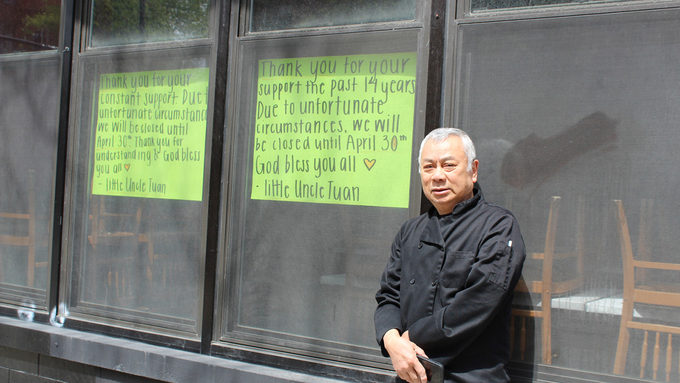 Thank you for your
constant support. Due to
unfortunate circumstances
we will be closed until
April 30th Thank you for
understanding & God bless
you all ♡
- little Uncle Tuan
Thank you for your
support the past 14 years
Due to unfortunate
circumstances, we will
be closed until April 30th
God bless you all ♡
- little Uncle Tuan